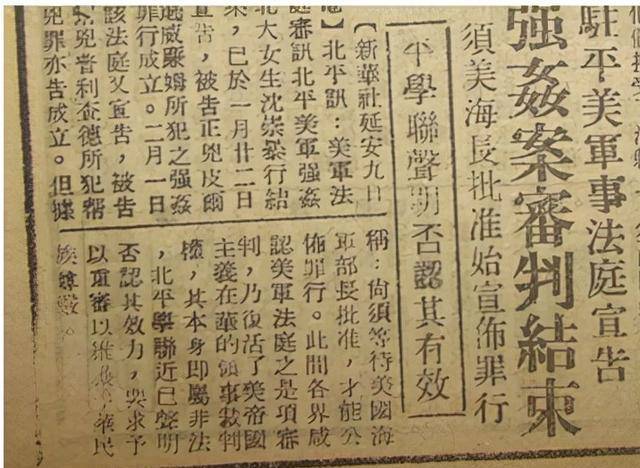 駐平美軍事法庭宣告
强姦案審判結束
須美海長批准始宣佈罪行
平學聯聲明否認其有效
【新華社延安九日
】北平訊:美軍法
庭審訊北平美軍强姦
北大女生沈崇暴行結
案,已於一月廿二日
宣告,被告正兇皮爾
威廉姆所犯之强姦
罪行成立。二月一日
該法庭又宣告,被告
兇普利查德所犯幫
兇罪亦告成立。但據
稱:尙須等待美國海
軍部長批准,才能公
佈罪行。此間各界咸
認美軍法庭之是項審
判,乃復活了美帝國
主義在華的領事裁判
權,其本身即屬非法
,北平學聯近已聲明
否認其效力,要求予
以重審以維護中華民
族尊嚴。